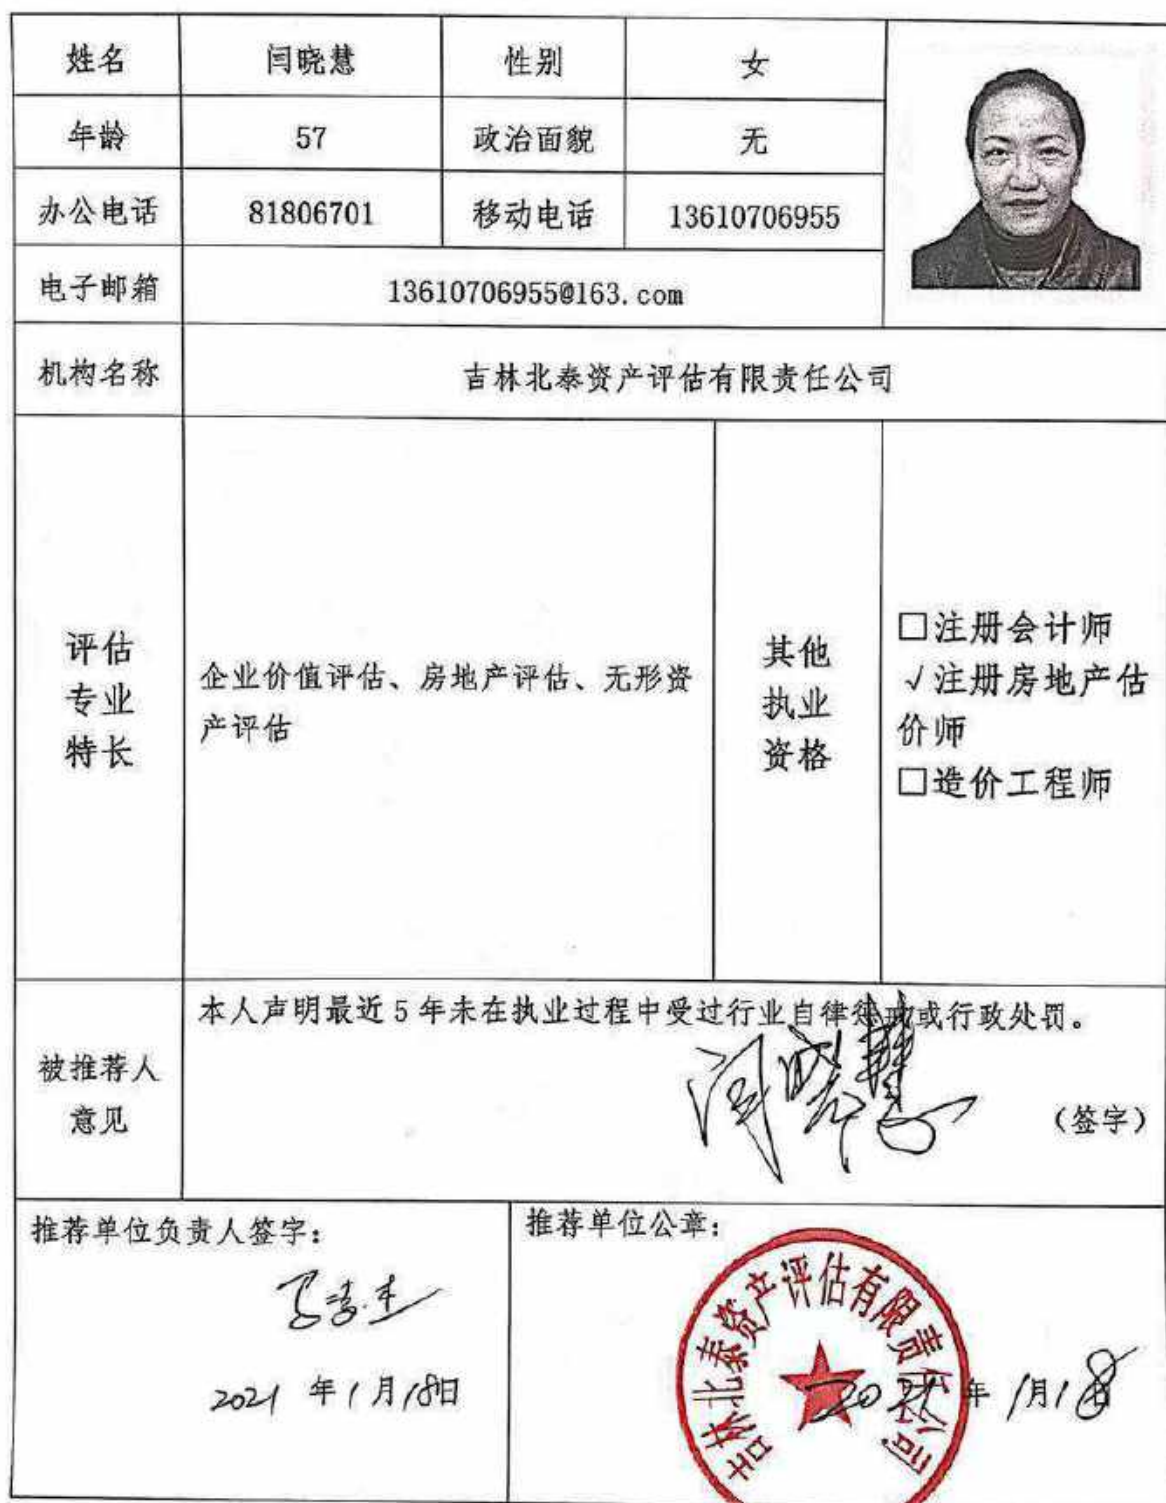 姓名 闫晓慧 性别 女
年龄 57 政治面貌 无
办公电话 81806701 移动电话 13610706955
电子邮箱 13610706955@163.com
机构名称 吉林北泰资产评估有限责任公司
评估
专业
特长
企业价值评估、房地产评估、无形资
产评估
其他
执业
资格
□注册会计师
√注册房地产估
价师
□造价工程师
被推荐人
意见
本人声明最近5年未在执业过程中受过行业自律惩戒或行政处罚。
闫晓慧 (签字)
推荐单位负责人签字:
2021 年 1 月 18 日
推荐单位公章:
吉林北泰资产评估有限责任公司
2021 年 1 月 18